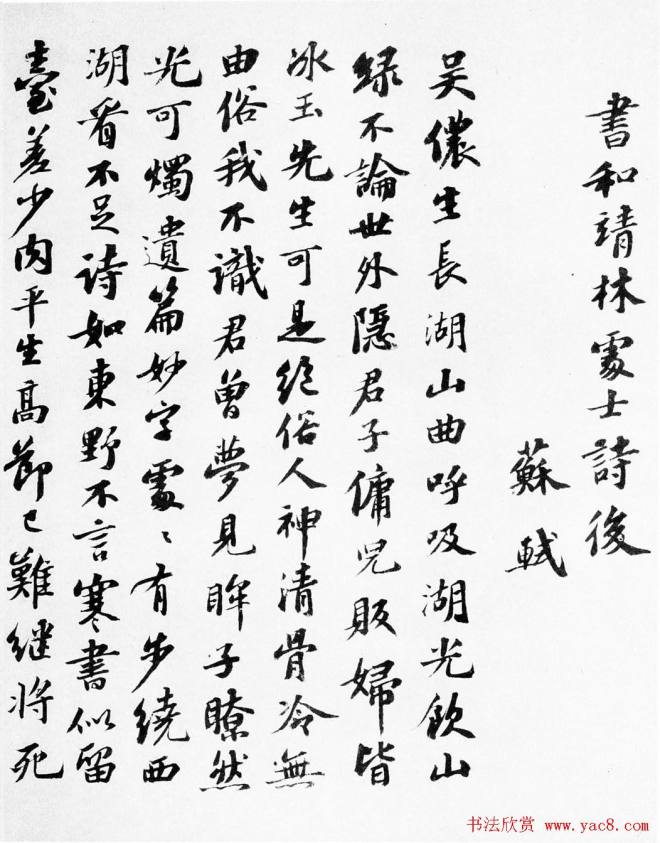 書和靖林處士詩後
蘇軾
吴儂生長湖山曲呼吸湖光飲山
緑不論世外隱君子傭兒販婦皆
冰玉先生可是絕俗人神清骨冷無
由俗我不識君曾夢見眸子瞭然
光可燭遺篇妙字處〻有步繞西
湖看不足詩如東野不言寒書似留
臺差少肉平生高節已難繼將死
书法欣赏 www.yac8.com